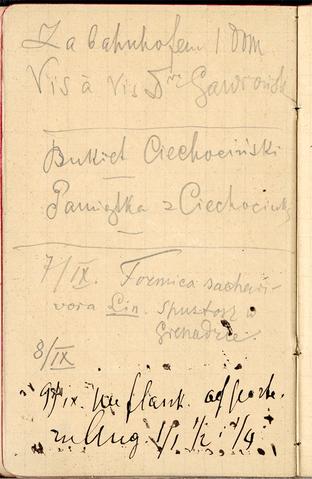 Za bahnhofem 1 Dom
Vis à Vis Dra Gawroński
Bukiet Ciechociński
Pamiątka z Ciechocinka
7/IX. Formica sachari-
vora Lin. spustosz w
Grenadzie.
8/IX
9/IX.
1/1 1/2 1/4